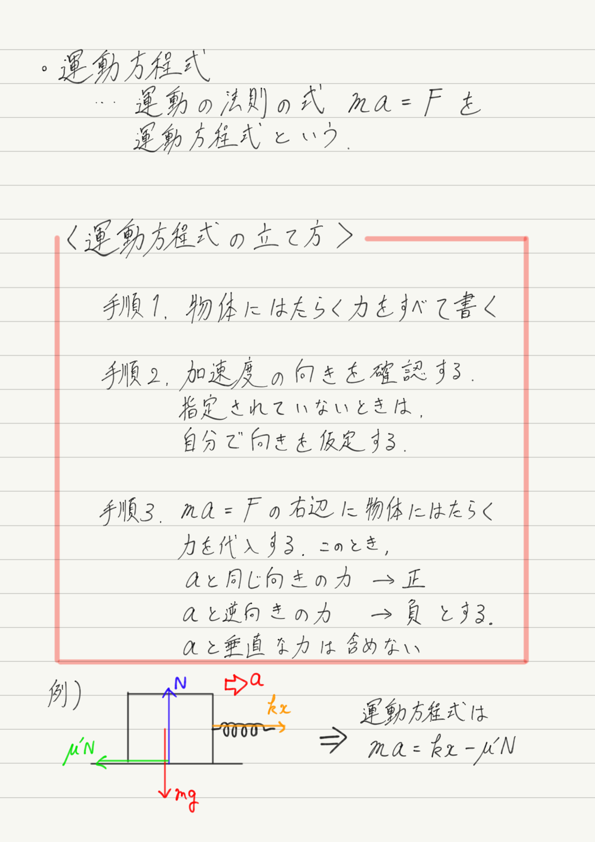 。運動方程式
… 運動の法則の式 ma = F を
運動方程式という.
〈運動方程式の立て方〉
手順1. 物体にはたらく力をすべて書く
手順2. 加速度の向きを確認する.
指定されていないときは,
自分で向きを仮定する.
手順3. ma = F の右辺に物体にはたらく
力を代入する. このとき,
aと同じ向きの力 → 正
aと逆向きの力 → 負 とする.
aと垂直な力は含めない
例)
N
a
kx
μ'N
mg
⇒ 運動方程式は
ma = kx - μ'N